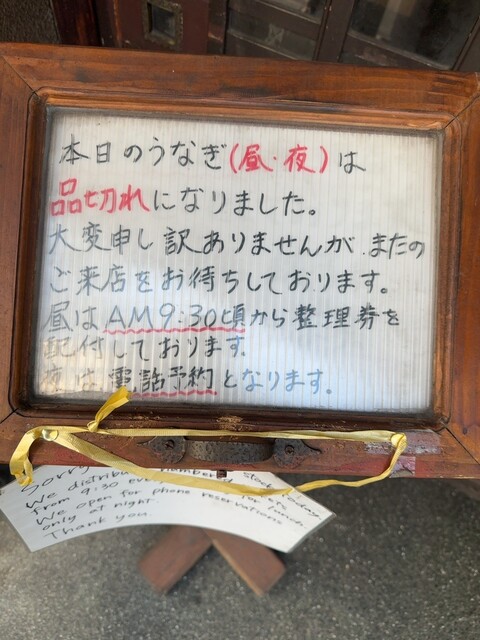 本日のうなぎ(昼・夜)は
品切れになりました。
大変申し訳ありませんが、またの
ご来店をお待ちしております。
昼はAM9:30頃から整理券を
配付しております.
夜は、電話予約となります.
Sorry stock today.
We distribute numbered
from 9:30 for lunch.
We open for phone reservations
only at night.
Thank you.